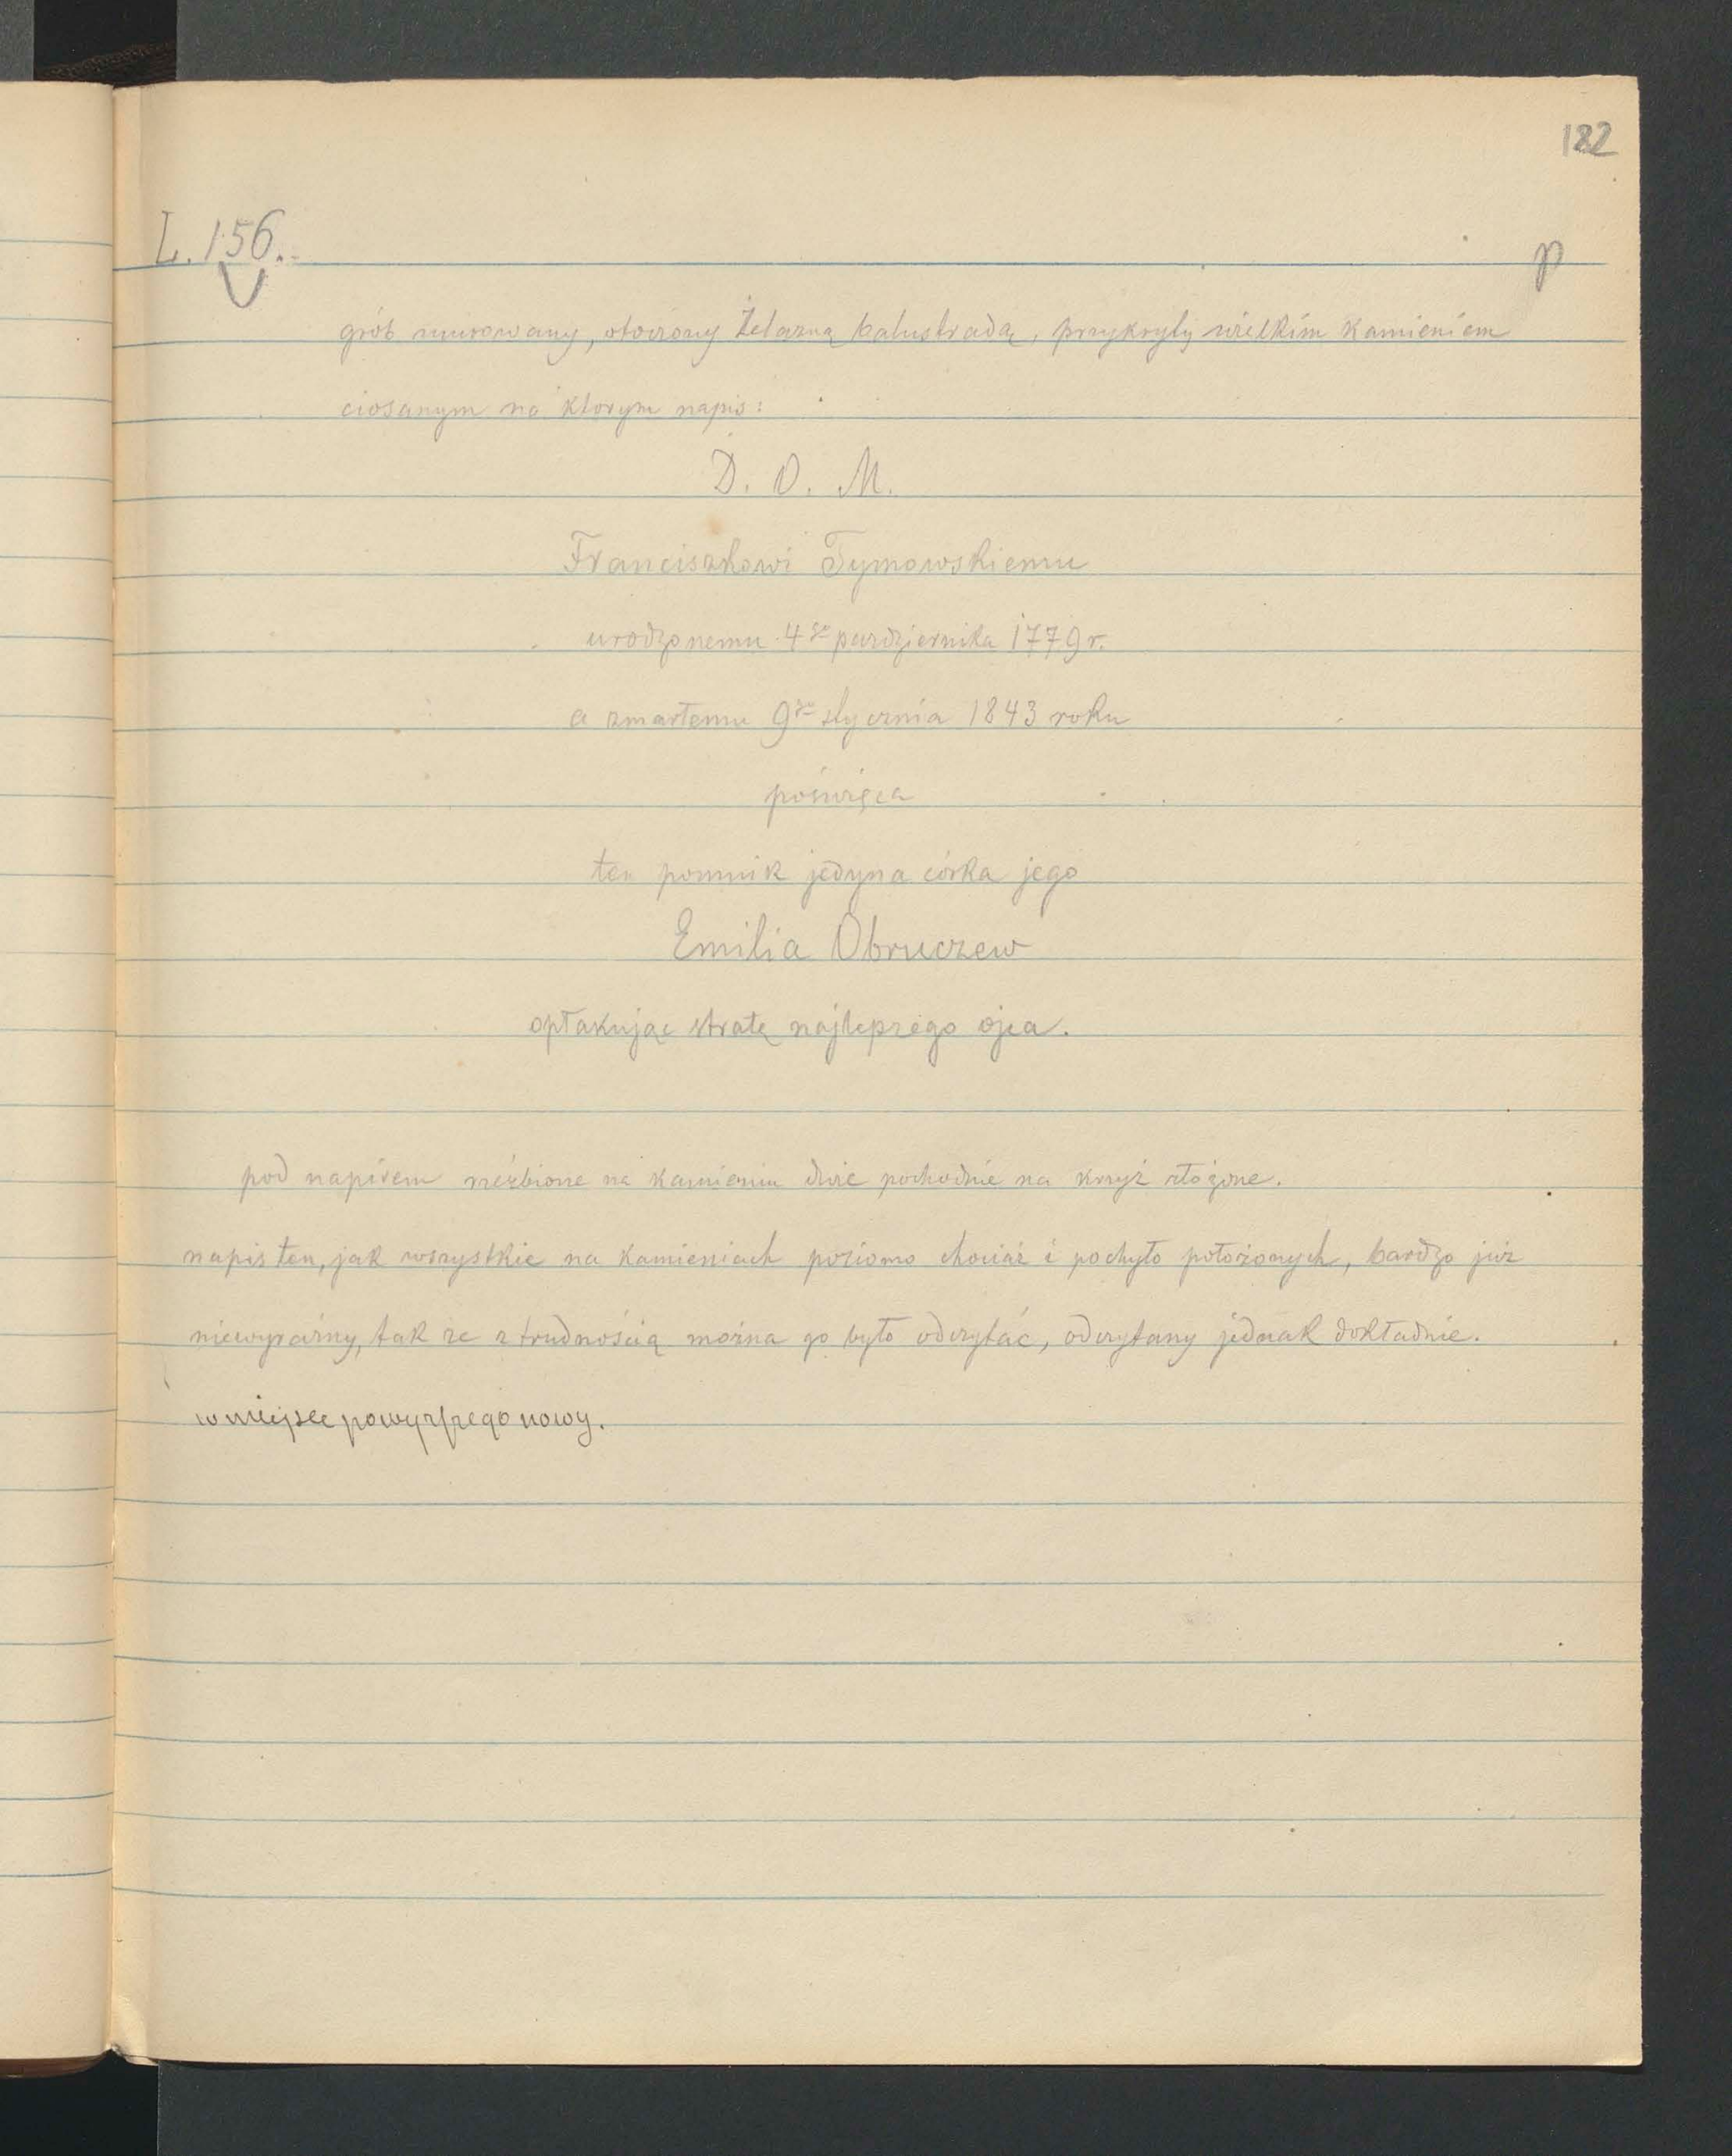 182
L. 156.
p
grób murowany, otoczony żelazną balustradą, przykryty wielkim kamieniem
ciosanym na ktorym napis:
D. O. M.
Franciszkowi Tymowskiemu
urodzonemu 4go pazdziernika 1779 r.
a zmarłemu 9go stycznia 1843 roku
poświęca
ten pomnik jedyna córka jego
Emilia Obruczew
opłakując stratę najlepszego ojca.
pod napisem rzeźbione na kamieniu dwie pochodnie na krzyż złożone.
napis ten, jak wszystkie na kamieniach poziomo chociaż i pochyło położonych, bardzo już
niewyraźny, tak że z trudnością można go było odczytać, odczytany jednak dokładnie.
w miejsce powyższego nowy.